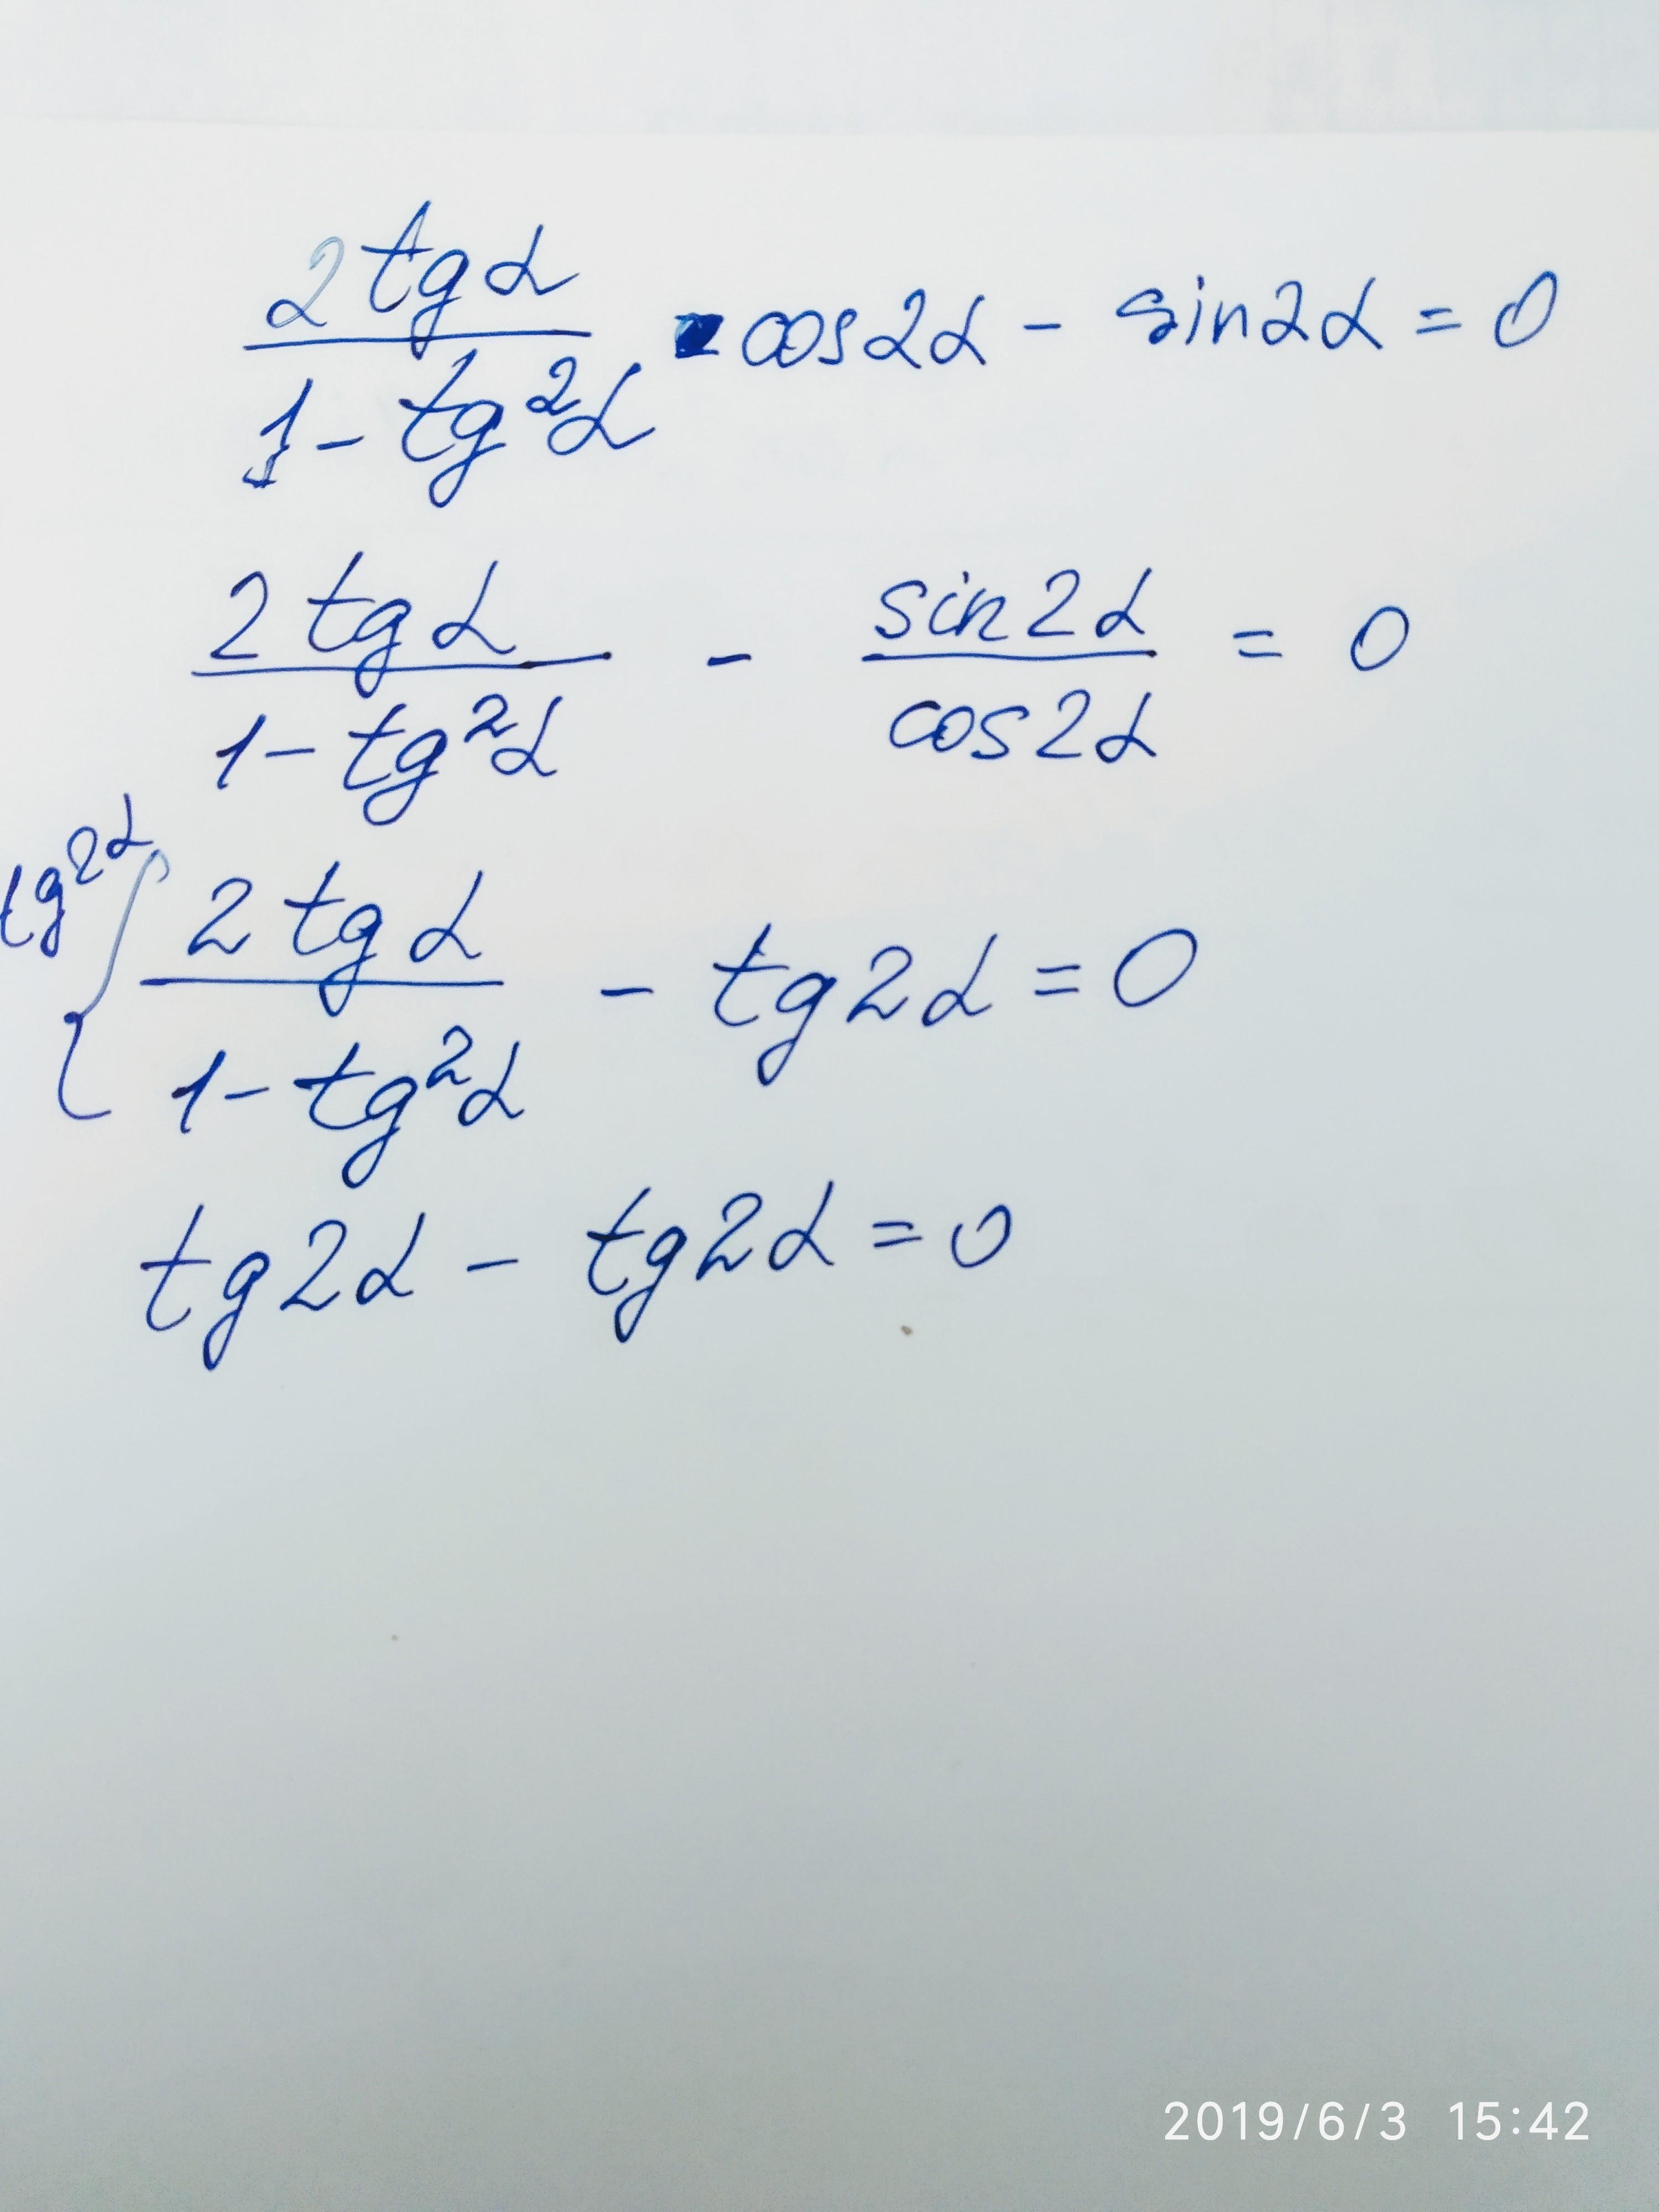 2 tg α / 1 - tg²α · cos2α - sin2α = 0
2 tg α / 1 - tg²α - sin2α / cos2α = 0
tg2α { 2 tg α / 1 - tg²α - tg2α = 0
tg2α - tg2α = 0
2019/6/3 15:42